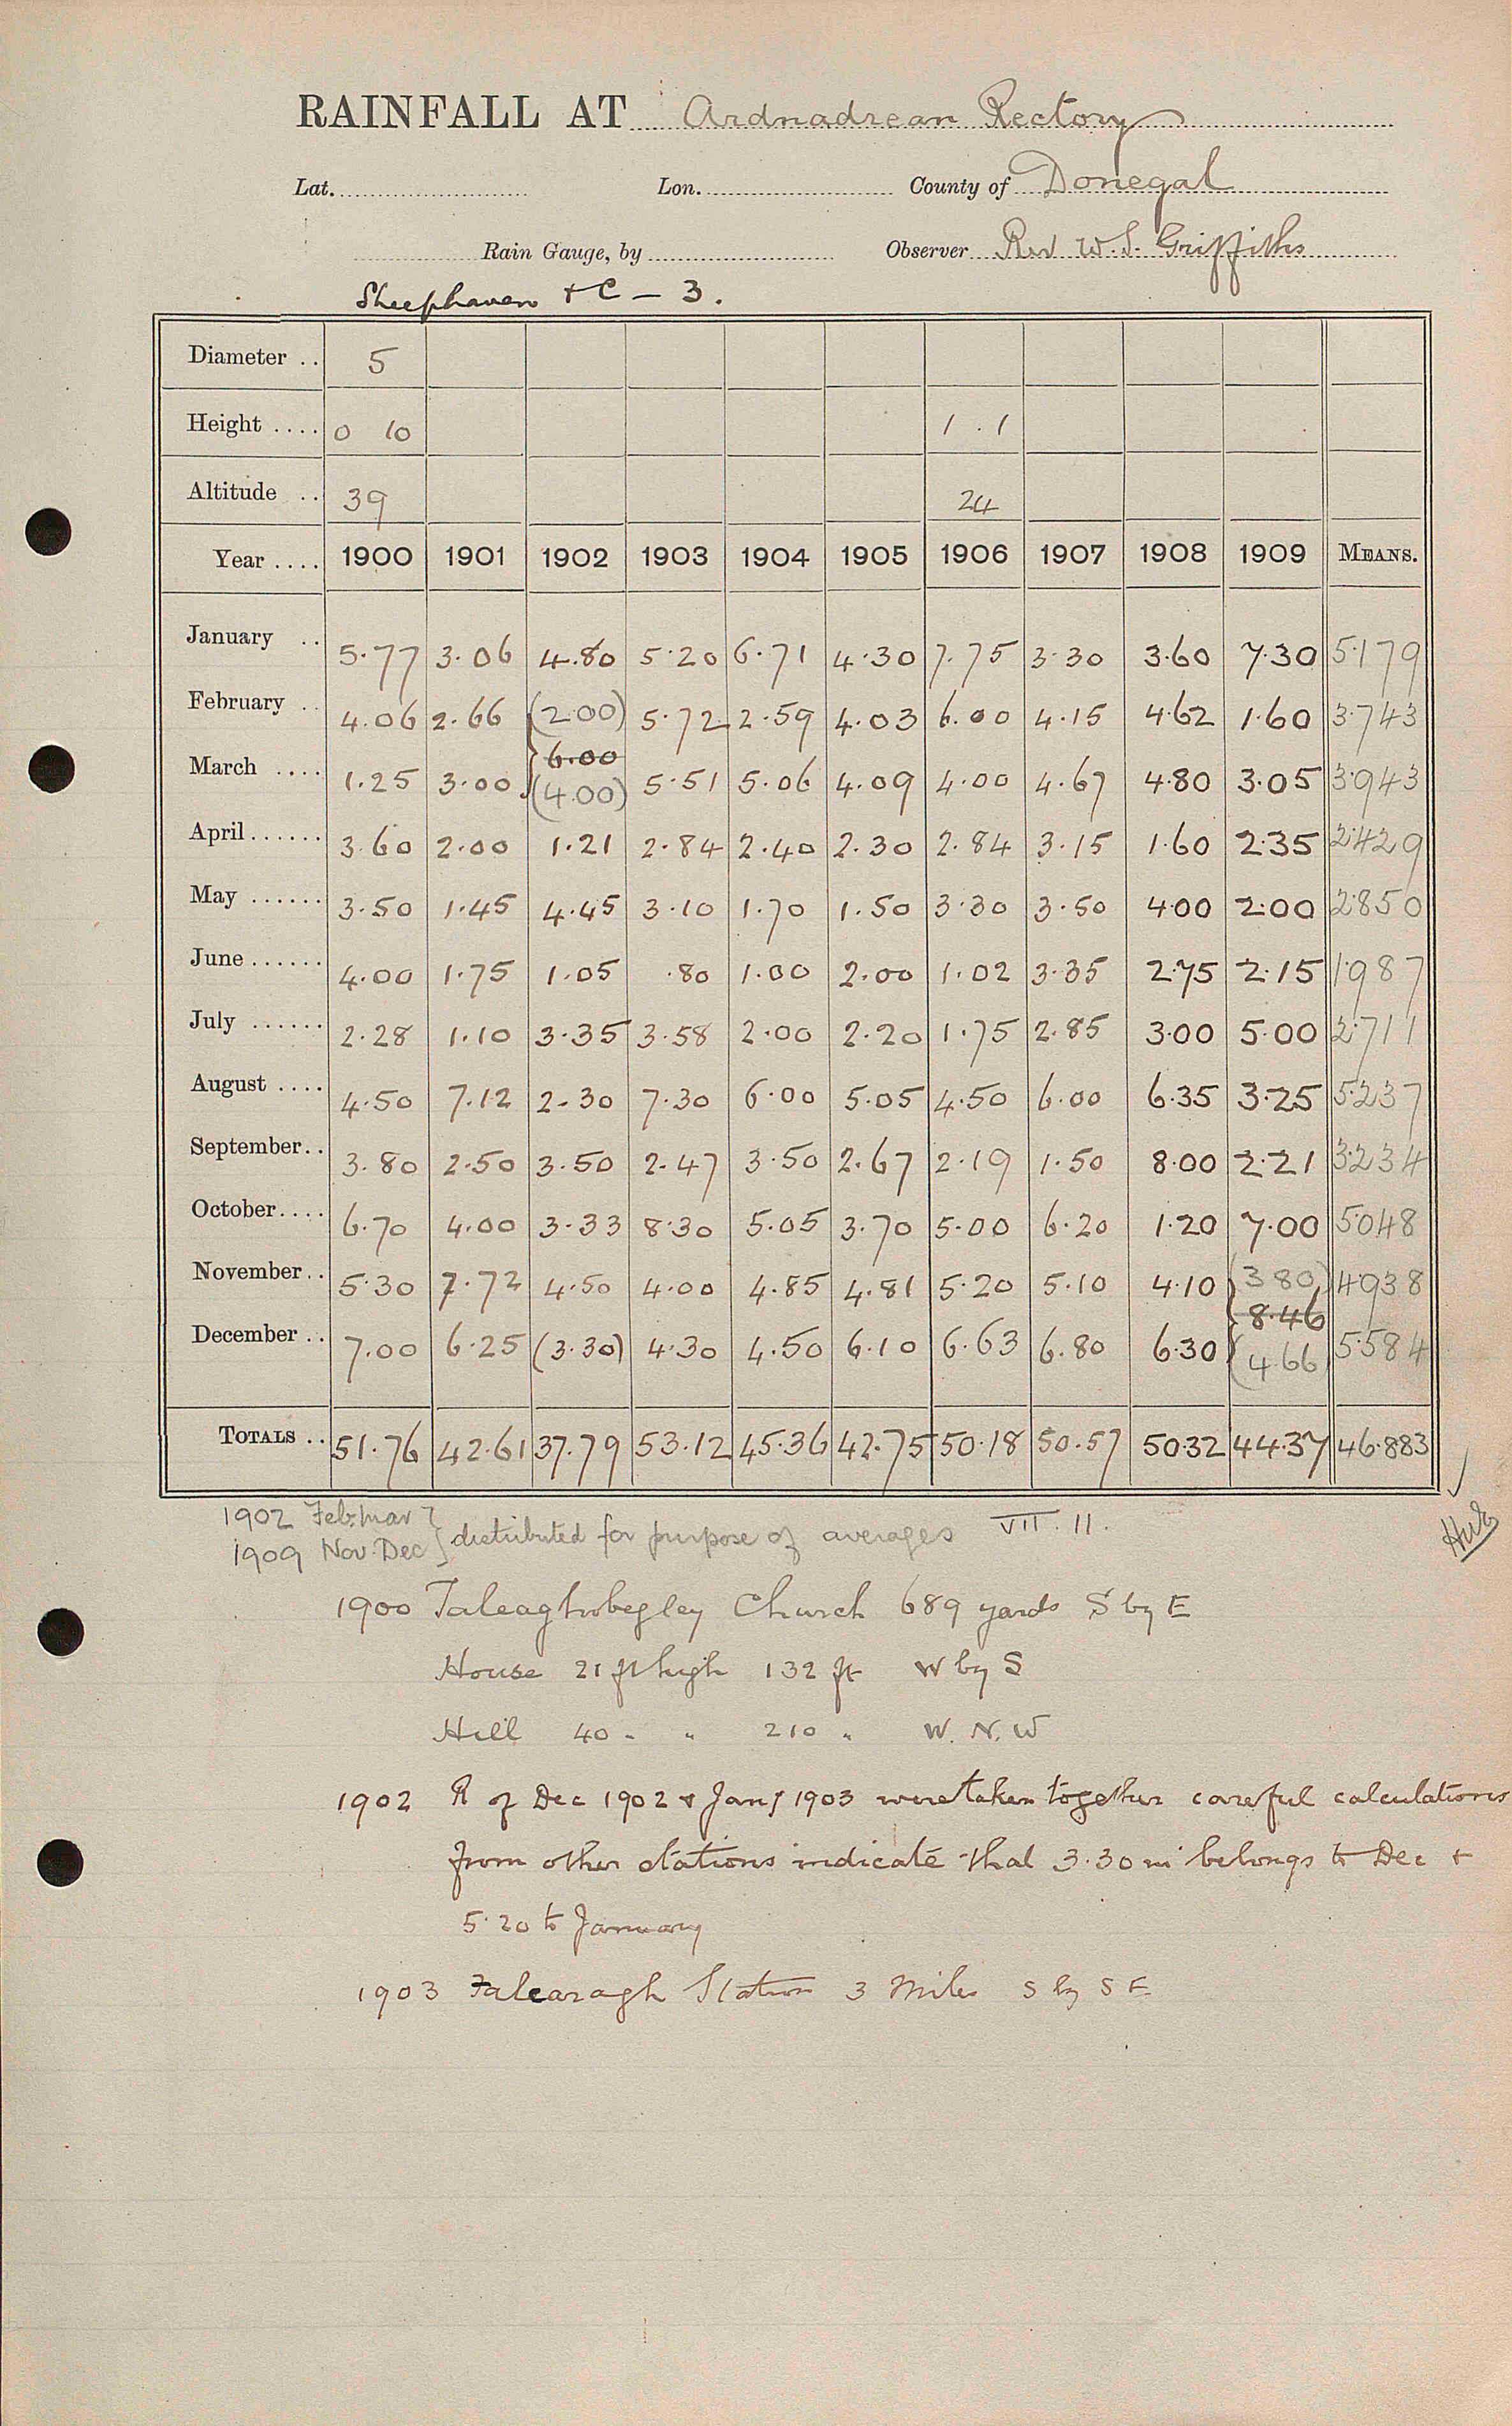 RAINFALL AT Ardnadrean Rectory
Lat. Lon. County of Donegal
Rain Gauge, by Observer Rev W. S. Griffiths
Sheephaven + C - 3.
Diameter .. 5
Height .... 0 10 1.1
Altitude .. 39 24
Year .... 1900 1901 1902 1903 1904 1905 1906 1907 1908 1909 MEANS.
January .. 5.77 3.06 4.80 5.20 6.71 4.30 7.75 3.30 3.60 7.30 5.179
February .. 4.06 2.66 (2.00) 5.72 2.59 4.03 6.00 4.15 4.62 1.60 3.743
6.00
March .... 1.25 3.00 (4.00) 5.51 5.06 4.09 4.00 4.67 4.80 3.05 3.943
April...... 3.60 2.00 1.21 2.84 2.40 2.30 2.84 3.15 1.60 2.35 2.429
May ...... 3.50 1.45 4.45 3.10 1.70 1.50 3.30 3.50 4.00 2.00 2.850
June ...... 4.00 1.75 1.05 .80 1.00 2.00 1.02 3.35 2.75 2.15 1.987
July ...... 2.28 1.10 3.35 3.58 2.00 2.20 1.75 2.85 3.00 5.00 2.711
August .... 4.50 7.12 2.30 7.30 6.00 5.05 4.50 6.00 6.35 3.25 5.237
September.. 3.80 2.50 3.50 2.47 3.50 2.67 2.19 1.50 8.00 2.21 3.234
October.... 6.70 4.00 3.33 8.30 5.05 3.70 5.00 6.20 1.20 7.00 5.048
November.. 5.30 7.72 4.50 4.00 4.85 4.81 5.20 5.10 4.10 (3.80) 4.938
8.46
December .. 7.00 6.25 (3.30) 4.30 4.50 6.10 6.63 6.80 6.30 (4.66) 5.584
TOTALS .. 51.76 42.61 37.79 53.12 45.36 42.75 50.18 50.57 50.32 44.37 46.883
1902 Feb. Mar
1909 Nov. Dec } distributed for purpose of averages VII. 11.
1900 Taleaghobegley Church 689 yards S by E
House 21 ft high 132 ft W by S
Hill 40 " " 210 " W. N. W
1902 R of Dec 1902 & Jany 1903 were taken together careful calculations
from other stations indicate that 3.30 in belongs to Dec +
5.20 to January
1903 Falcaragh Station 3 Miles S by S E